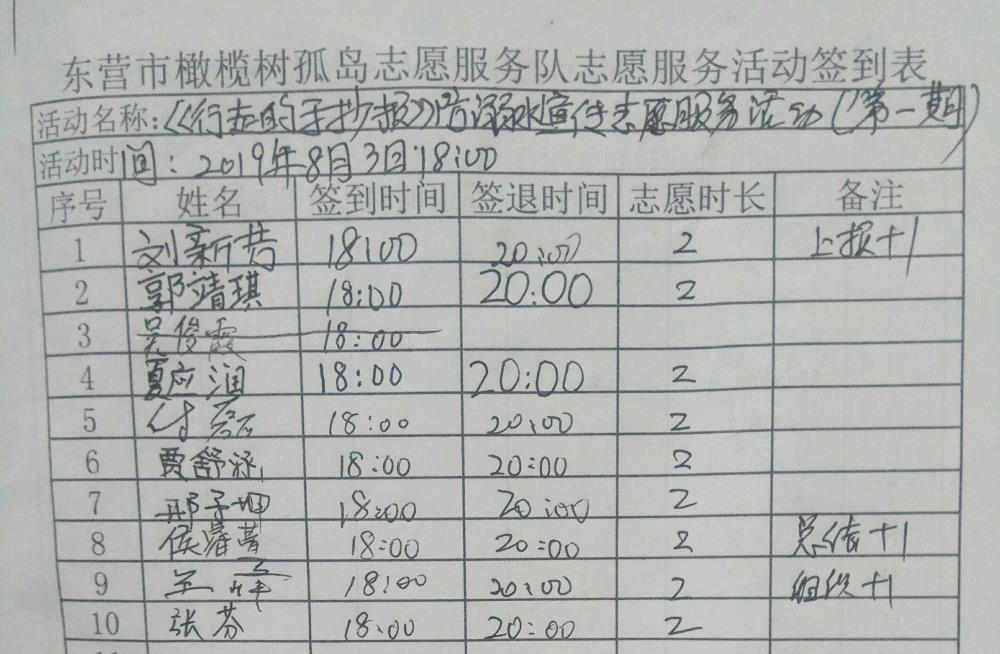 东营市橄榄树孤岛志愿服务队志愿服务活动签到表
活动名称:《行走的手抄报》防溺水宣传志愿服务活动(第一期)
活动时间:2019年8月3日18:00
序号 姓名 签到时间 签退时间 志愿时长 备注
1 刘新 18:00 20:00 2 上报+1
2 郭靖琪 18:00 20:00 2
3 吴俊霞 18:00
4 夏应润 18:00 20:00 2
5 付磊 18:00 20:00 2
6 贾舒涵 18:00 20:00 2
7 邢子 18:00 20:00 2
8 侯睿菁 18:00 20:00 2 总结+1
9 18:00 20:00 2 组织+1
10 张芬 18:00 20:00 2